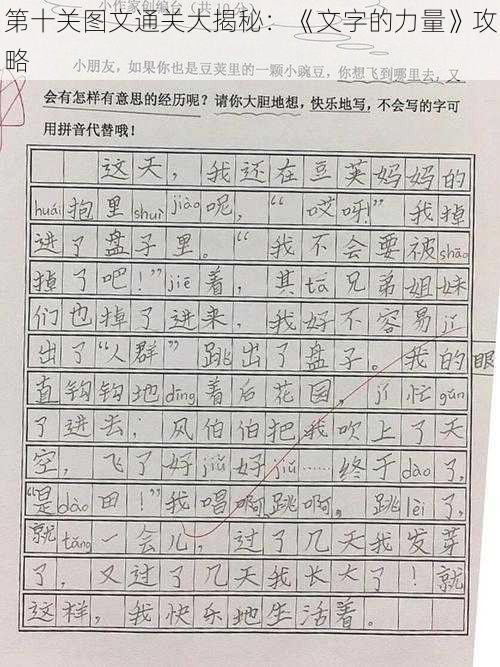 第十关图文通关大揭秘：《文字的力量》攻略
小作家创编台（共10分）
小朋友，如果你也是豆荚里的一颗小豌豆，你想飞到哪里去，又
会有怎样有意思的经历呢？请你大胆地想，快乐地写，不会写的字可
用拼音代替哦！
这天，我还在豆荚妈妈的
huái抱里shuì jiào呢，“哎呀！”我掉
进了盘子里。“我不会要被shāo
掉了吧！”jiē着，其tā兄弟姐妹
们也掉了进来，我好不容易jǐ
出了“人群”跳出了盘子。我的眼
直钩钩地dīng着后花园，jí忙gǔn
了进去；风伯伯把我吹上了天
空，飞了好jiǔ好jiǔ……终于dào了，
“是dào田！”我唱啊，跳啊。跳lèi了，
就tǎng一会儿，过了几天我发芽
了，又过了几天我长大了！就
这样，我快乐地生活着。